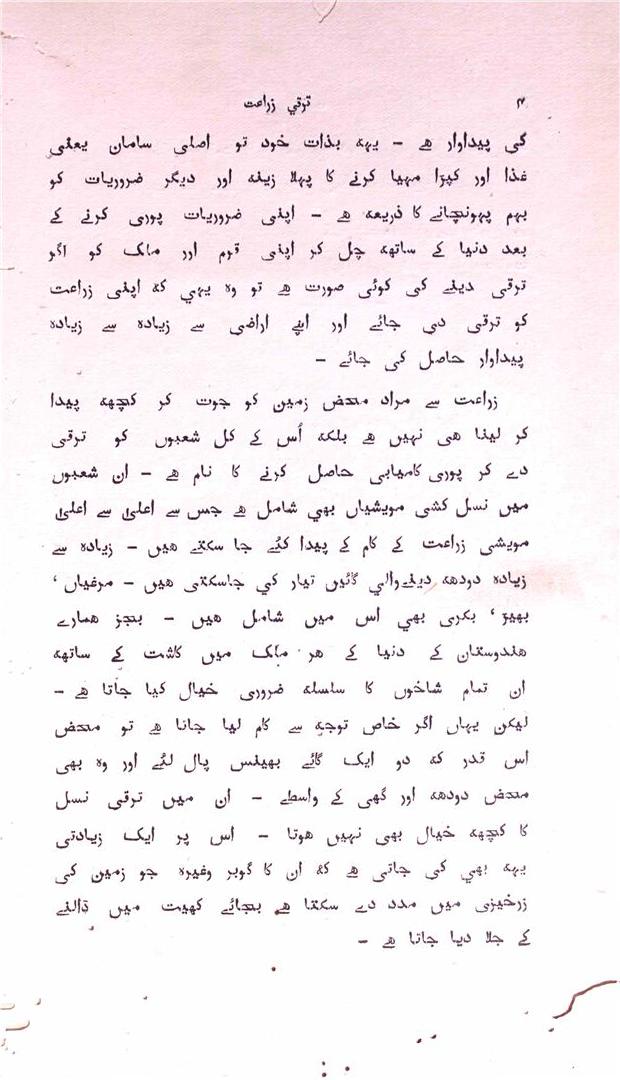 ۴ ترقي زراعت
کی پیداوار هے - یہہ بذات خود تو اصلی سامان یعنی
غذا اور کپڑا مہیا کرنے کا پہلا زینہ اور دیگر ضروریات کو
بہم پہونچانے کا ذریعہ هے - اپنی ضروریات پوری کرنے کے
بعد دنیا کے ساتھہ چل کر اپنی قوم اور ملک کو اگو
ترقی دینے کی کوئی صورت هے تو وہ یہی کہ اپنی زراعت
کو ترقی دی جائے اور اپنے اراضی سے زیادہ سے زیادہ
پیداوار حاصل کی جائے -
زراعت سے مراد محض زمین کو جوت کر کچھہ پیدا
کر لینا هی نہیں هے بلکہ اُس کے کل شعبوں کو ترقی
دے کر پوری کامیابی حاصل کرنے کا نام هے - ان شعبوں
میں نسل کشی مویشیاں بھی شامل هے جس سے اعلیٰ سے اعلیٰ
مویشی زراعت کے کام کے پیدا کئے جا سکتے هیں - زیادہ سے
زیادہ دودھہ دینےوالي گائیں تیار کی جاسکتی هیں - مرغیاں ،
بھیڑ ، بکری بھی اس میں شامل هیں - بجز همارے
هندوستان کے دنیا کے هر ملک میں کاشت کے ساتھہ
ان تمام شاخوں کا سلسلہ ضروری خیال کیا جاتا هے -
لیکن یہاں اگر خاص توجہ سے کام لیا جاتا هے تو محض
اس قدر کہ دو ایک گائے بھینس پال لئے اور وہ بھی
محض دودھہ اور گھی کے واسطے - ان میں ترقی نسل
کا کچھہ خیال بھی نہیں هوتا - اس پر ایک زیادتی
یہہ بھی کی جاتی هے کہ ان کا گوبر وغیرہ جو زمین کی
زرخیزی میں مدد دے سکتا هے بجائے کھیت میں ڈالنے
کے جلا دیا جاتا هے -